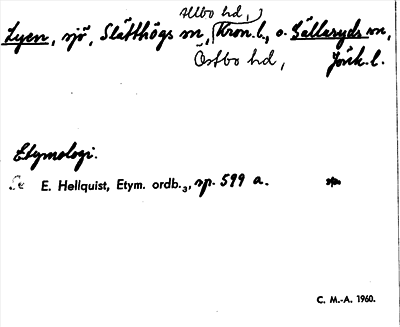 Allbo hd,
Lyen, sjö, Slätthögs sn, Kron. l., o. Källeryds sn,
Östbo hd, Jönk. l.
Etymologi.
Se E. Hellquist, Etym. ordb.3, sp. 599 a.
C. M.-A. 1960.